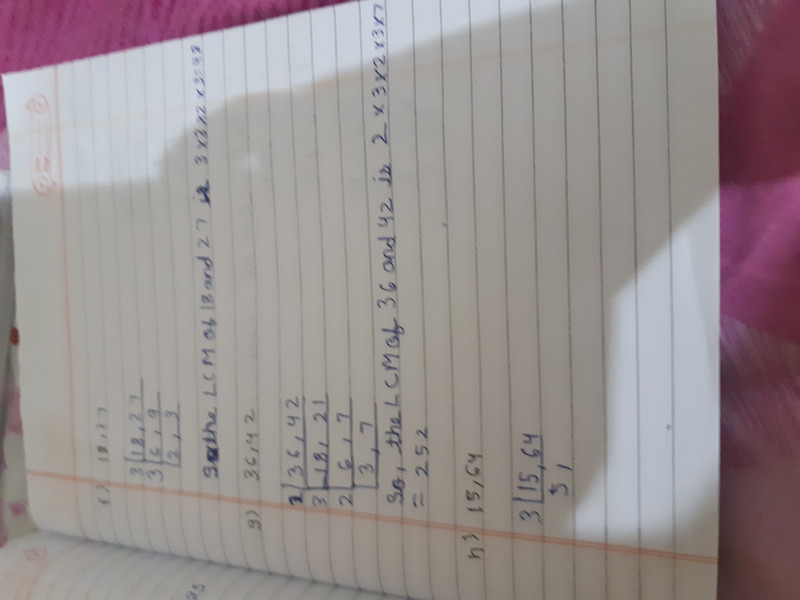 f) 18,27
3|18,27
3|6,9
|2,3
So the LCM of 18 and 27 is 3x3x2x3=48
g) 36,42
2|36,42
3|18,21
2|6,7
|3,7
So, the LCM of 36 and 42 is 2x3x2x3x7
= 252
h) 15,64
3|15,64
5,